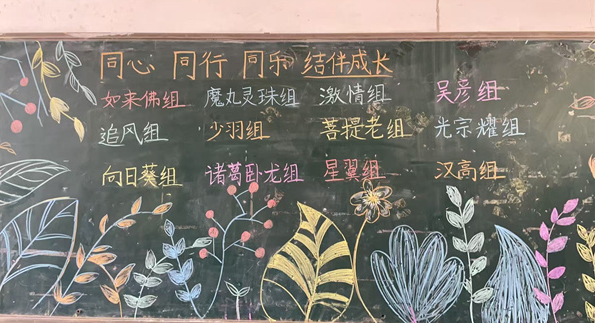 同心 同行 同乐 结伴成长
如来佛组 魔丸灵珠组 激情组 吴彦组
追风组 少羽组 菩提老组 光宗耀组
向日葵组 诸葛卧龙组 星翼组 汉高组